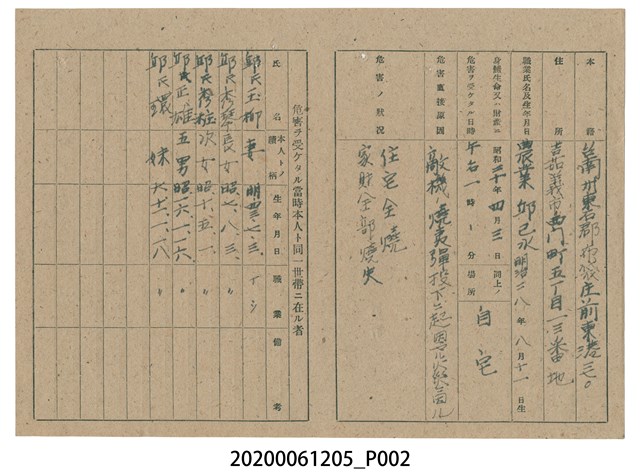 本籍 台南州東石郡布袋庄前東港三〇
住所 嘉義市西門町五丁目一三番地
職業氏名及生年月日 農業 邱己永 明治三八年八月十一日生
身體生命又ハ財產ニ危害ヲ受ケタル日時 昭和二十年四月三日 午后一時 分 同上ノ場所 自宅
危害直接原因 敵機ノ燒夷彈投下ニ起因
危害ノ狀況 住宅全燒
家財全部燒失
危害ヲ受ケタル當時本人ト同一世帶ニ在ル者
氏名 本人トノ續柄 生年月日 職業 備考
邱氏玉柳 妻 明四三、七、三 ナシ
邱氏秀琴 長女 昭七、八、三 〃
邱氏 次女 昭一〇、五、一 〃
邱正雄 五男 昭一六、一、一六 〃
邱氏環 妹 大十二、一、一八 〃
20200061205_P002